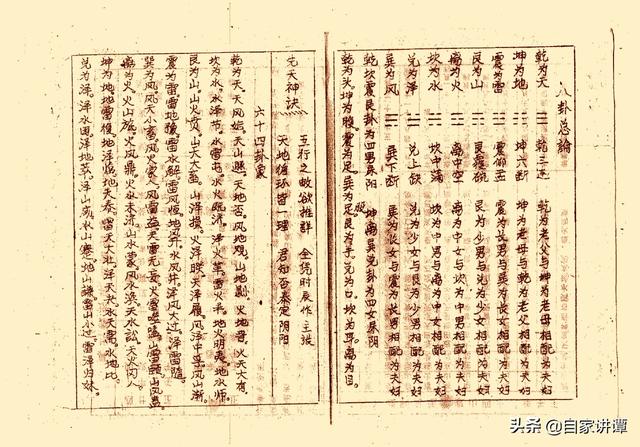 八卦总論
乾为天 ☰ 乾三连 乾为老父与坤为老母相配为夫妇
坤为地 ☷ 坤六断 坤为老母与乾为老父相配为夫妇
震为雷 ☳ 震仰盂 震为长男与巽为长女相配为夫妇
艮为山 ☶ 艮覆碗 艮为少男与兑为少女相配为夫妇
离为火 ☲ 离中空 离为中女与坎为中男相配为夫妇
坎为水 ☵ 坎中满 坎为中男与离为中女相配为夫妇
兑为泽 ☱ 兑上缺 兑为少女与艮为少男相配为夫妇
巽为风 ☴ 巽下断 巽为长女与震为长男相配为夫妇
乾坎震艮卦为四男属阳 坤离巽兑卦为四女属阴
乾为头坤为腹。震为足。巽为股。艮为手。兑为口。坎为耳。离为目。
先天神诀 五行之数欲推群 全凭时辰作主张
天地循环皆一理 君知否泰定阴阳
六十四卦象
乾为天。天风姤。天山遁。天地否。风地观。山地剥。火地晋。火天大有。
坎为水。水泽节。水雷屯。水火既济。泽火革。雷火丰。地火明夷。地水师。
艮为山。山火贲。山天大畜。山泽损。火泽睽。天泽履。风泽中孚。风山渐。
震为雷。雷地豫。雷水解。雷风恒。地风升。水风井。泽风大过。泽雷随。
巽为风。风天小畜。风火家人。风雷益。天雷无妄。火雷噬嗑。山雷颐。山风蛊。
离为火。火山旅。火风鼎。火水未济。山水蒙。风水涣。天水讼。天火同人。
坤为地。地雷復。地泽临。地天泰。雷天大壮。泽天夬。水天需。水地比。
兑为泽。泽水困。泽地萃。泽山咸。水山蹇。地山謙。雷山小过。雷泽归妹。
头条 @自家讲谭